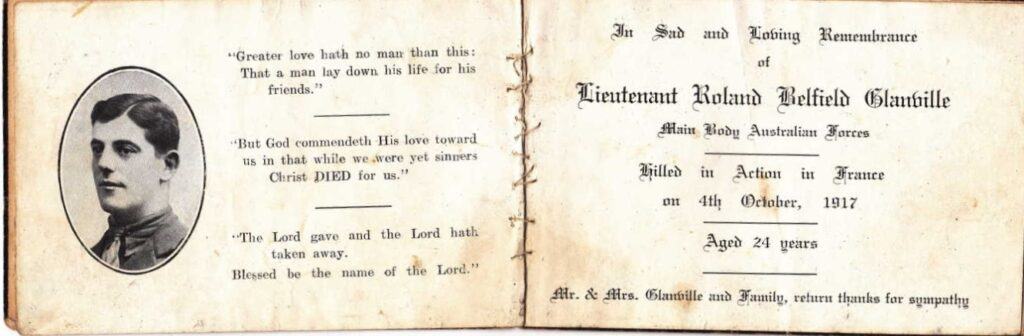 "Greater love hath no man than this:
That a man lay down his life for his
friends."
"But God commendeth His love toward
us in that while we were yet sinners
Christ DIED for us."
"The Lord gave and the Lord hath
taken away.
Blessed be the name of the Lord."
In Sad and Loving Remembrance
of
Lieutenant Roland Belfield Glanville
Main Body Australian Forces
Killed in Action in France
on 4th October, 1917
Aged 24 years
Mr. & Mrs. Glanville and Family, return thanks for sympathy